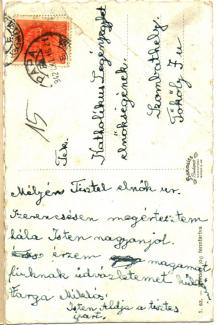 PÁPA
15
Tek.
Katholikus Legényegylet
elnökségének.
Szombathely.
Tököly F. u
Mélyén Tisztel elnök ur.
Szerencsésen megérkeztem
hála Isten nagyanjol.
érzem magamat
finknak üdvözletemet
Varga Miklós.
Isten Áldja a tisztes
ipart.